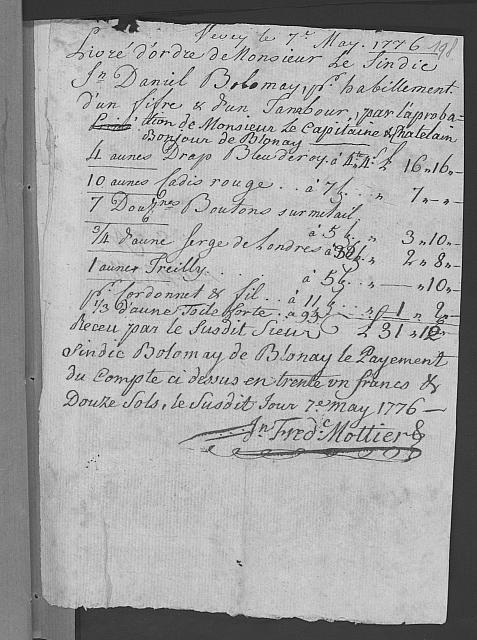 Vevey le 7e. May. 1776
198
Livré d'ordre de Monsieur Le Sindic
Jn Daniel Bolomay, pr. habillement
d'un fifre & d'un Tambour, par l'aproba-
ation de Monsieur Le Capitaine & Chatelain
Bonjour de Blonay
4 aunes Drap Bleu de roy. à 4 " 4 £ 16 " 16 " -
10 aunes Cadis rouge . . à 7 " 7 " - " -
7 Douznes Boutons sur metail,
à 5 " 3 " 10 " -
3/4 d'aune Serge de Londres " 2 " 8 " -
1 aunes Treilly . . à 5 - " 10 " -
pr. Cordonnet & fil . . à 11 1
1/3 d'aune Toile forte . à
Receu par le Susdit Sieur £ 31 " 12
Sindic Bolomay de Blonay le Payement
du Compte ci dessus en trente un francs &
Douze Sols, le Susdit Jour 7e may 1776 -
Jn Fredc Mottier